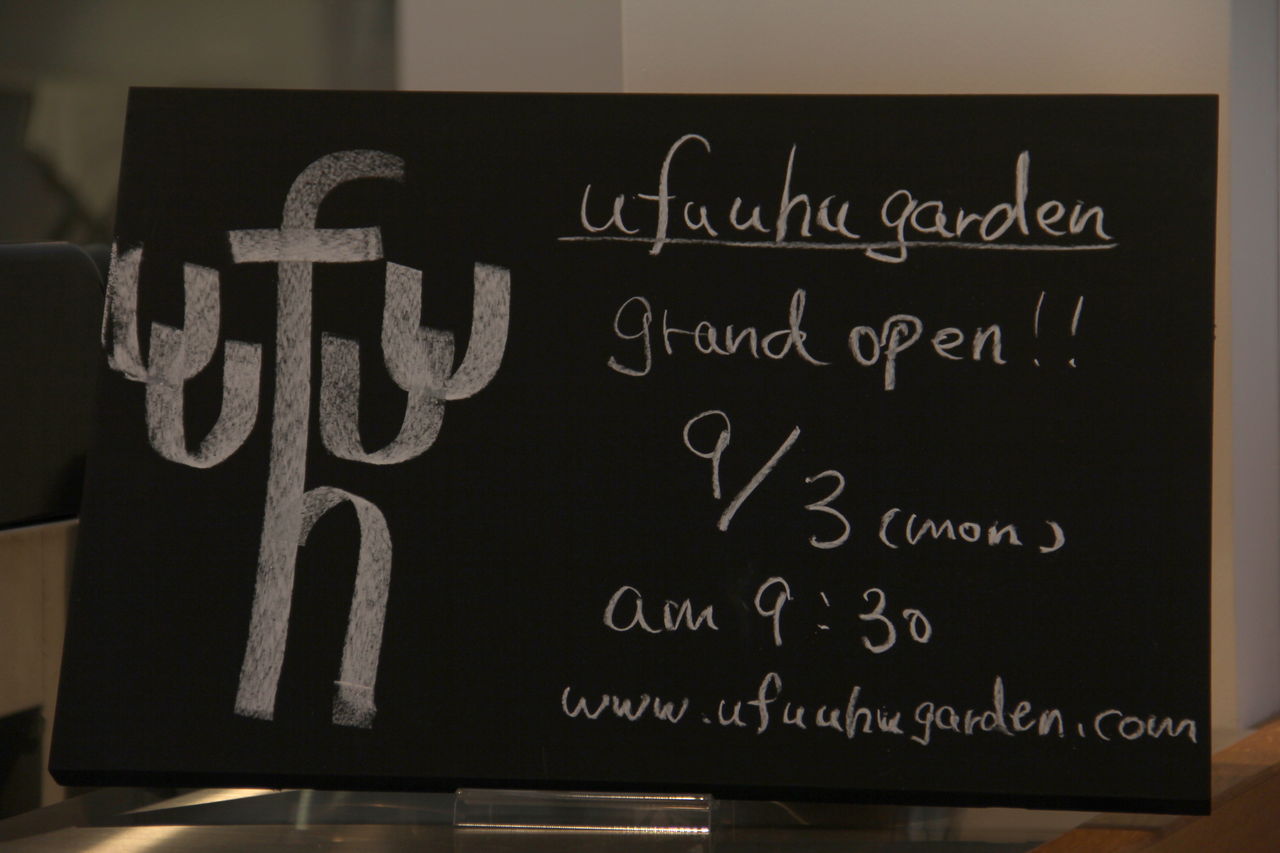 ufuuhu garden
grand open!!
9/3 (mon)
am 9:30
www.ufuuhugarden.com